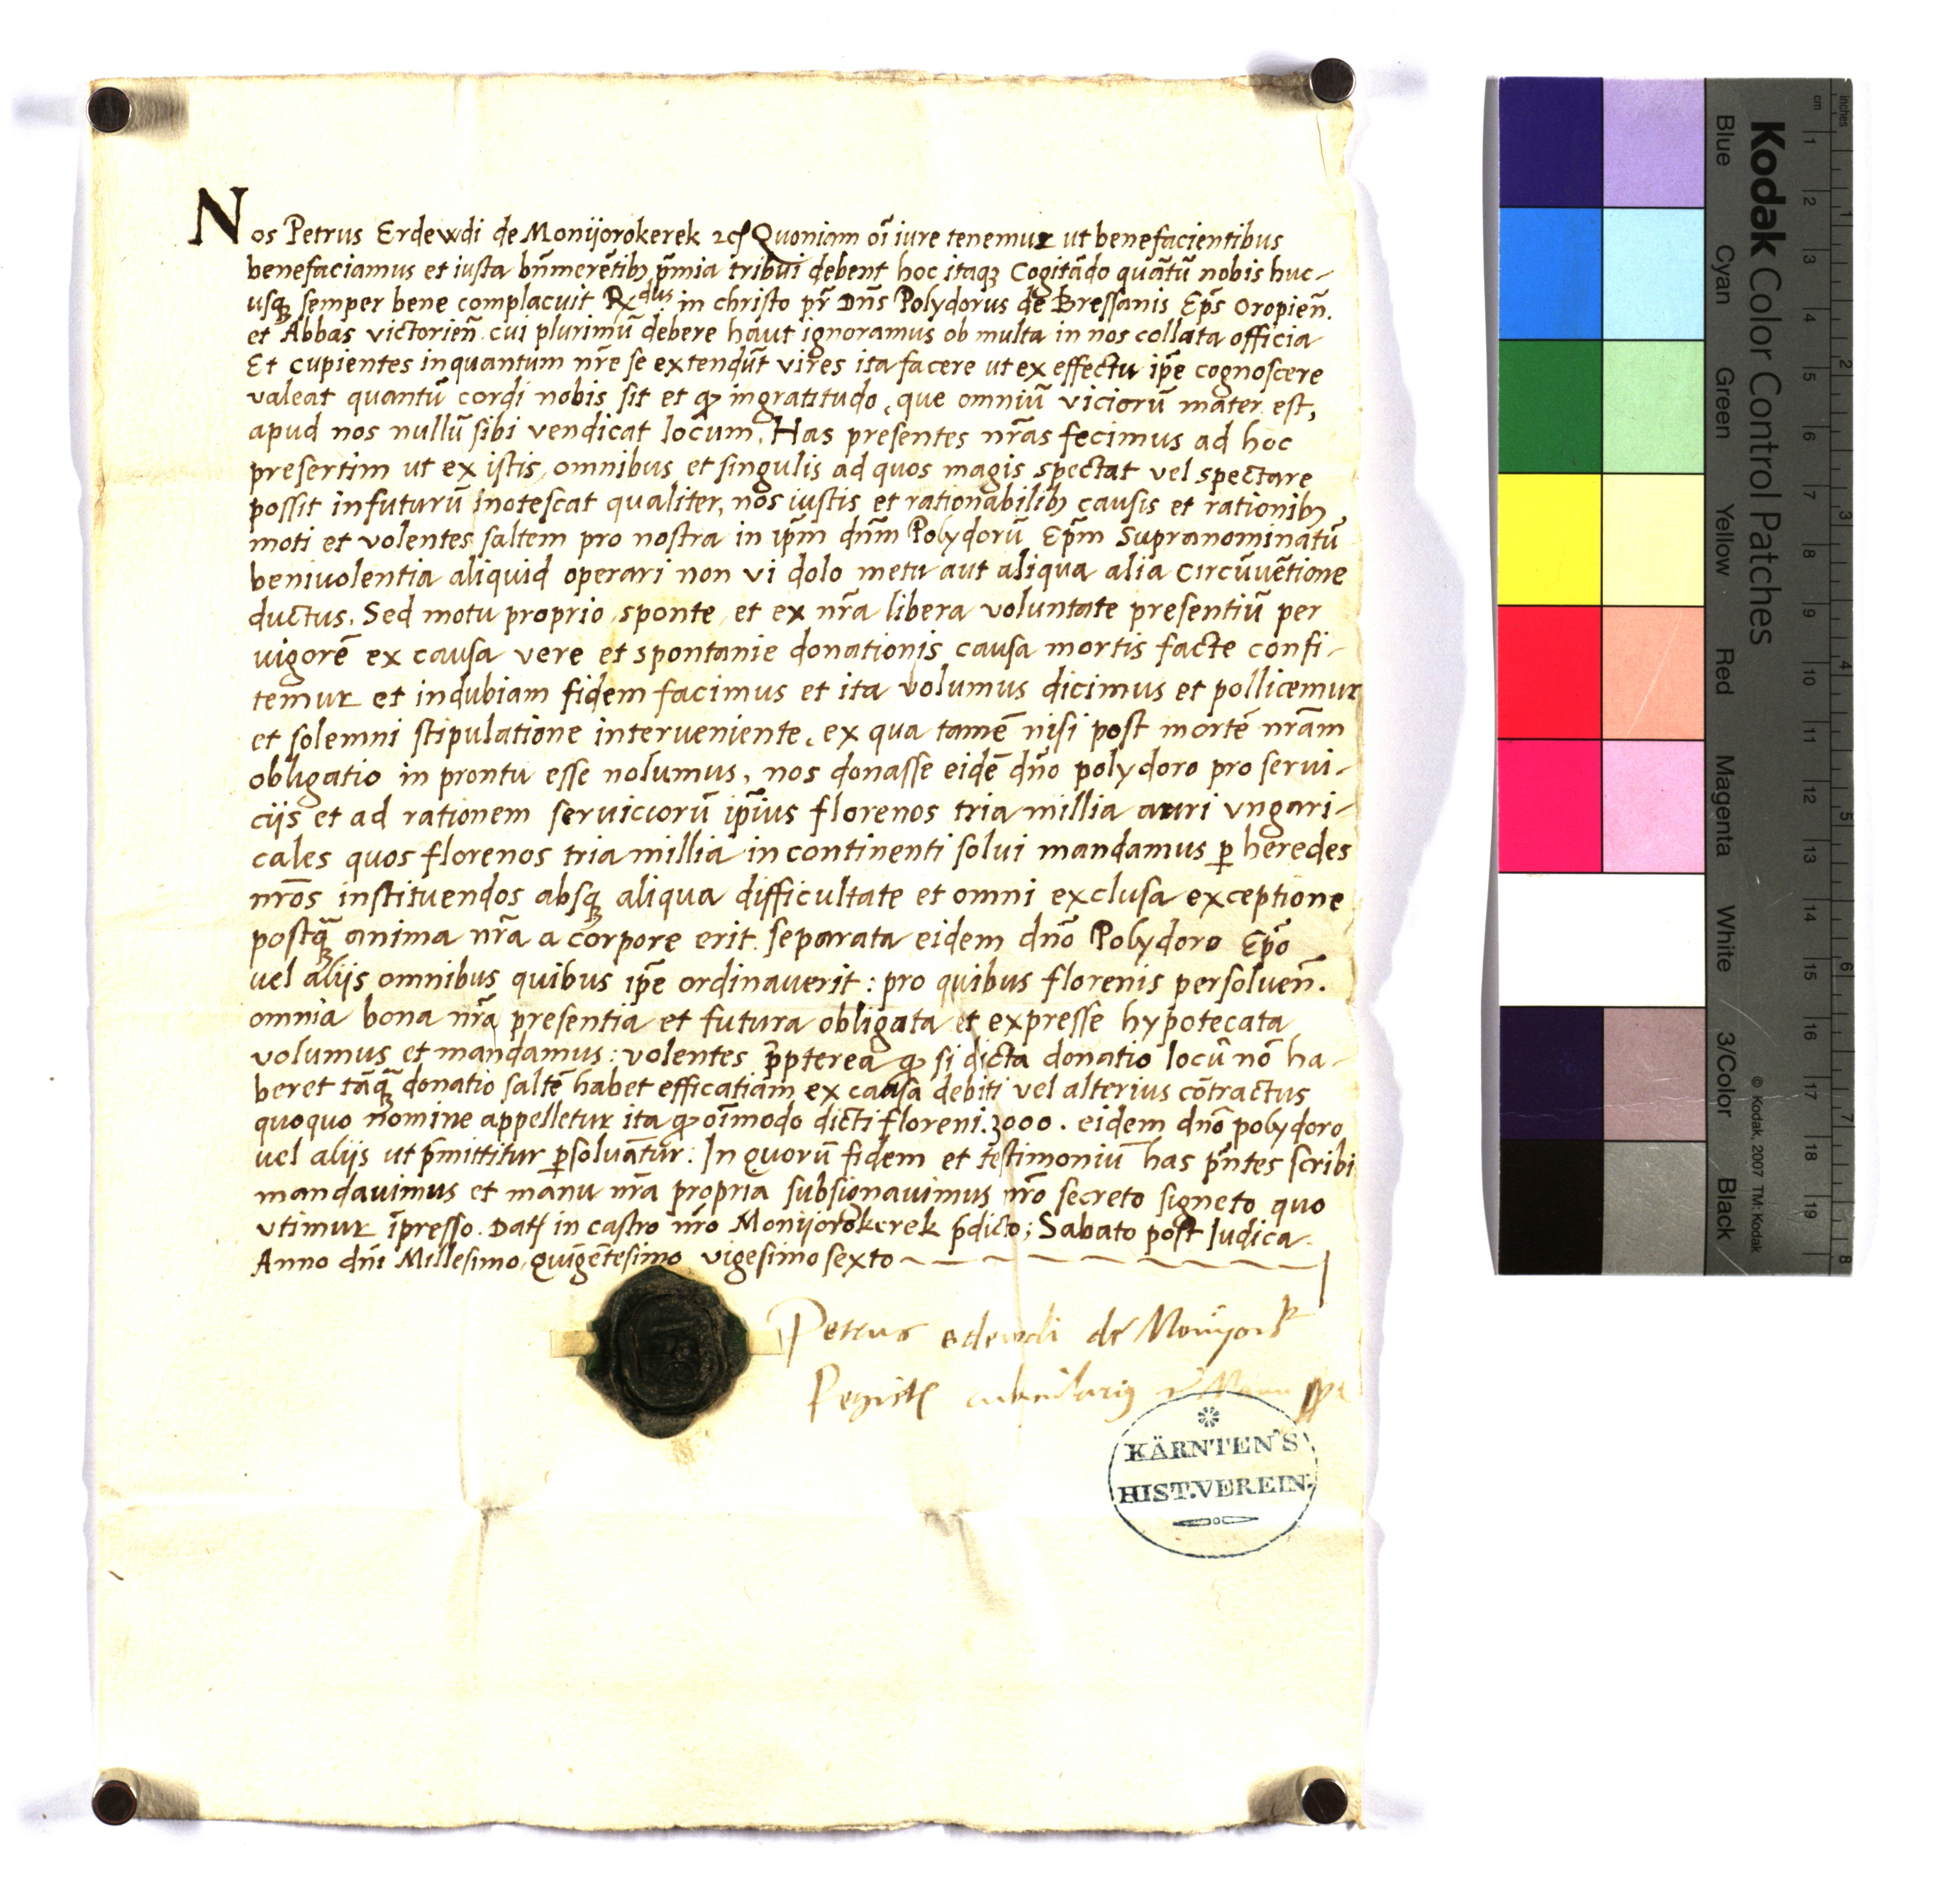 Nos Petrus Erdewdi de Monijorokerek Quoniam oı̄ iure tenemur ut benefacientibus
benefaciamus et iusta bn̄merētib₉ p̄mia tribui debent hoc itaqꝫ Cogitādo quātū nobis huc-
usqꝫ semper bene complacuit Rᵈᵘˢ in christo pr̄ Dn̄s Polydorus de Bressanis Ep̄s Oropien̄.
et Abbas victorien̄ cui plurimū debere haut ignoramus ob multa in nos collata officia
Et cupientes inquantum nr̄e se extendūt vires ita facere ut ex effectu ip̄e cognoscere
valeat quantū cordi nobis sit et ꝙ ingratitudo, que omniū viciorū mater est,
apud nos nullū sibi vendicat locum, Has presentes nr̄as fecimus ad hoc
presertim ut ex istis omnibus et singulis ad quos magis spectat vel spectare
possit in futurū inotescat qualiter, nos iustis et rationabilib₉ causis et rationib₉
moti et volentes saltem pro nostra in ip̄m dn̄m Polydorū Ep̄m Supranominatū
beniuolentia aliquid operari non vi dolo metu aut aliqua alia circūuētione
ductus. Sed motu proprio, sponte, et ex nr̄a libera voluntate presentiū per
uigorē ex causa vere et spontanie donationis causa mortis facte confi-
temur et indubiam fidem facimus et ita volumus dicimus et pollicemur
et solemni stipulatione interueniente, ex qua tamē nisi post mortē nr̄am
obligatio in prontu esse nolumus, nos donasse eidē dn̄o polydoro pro serui-
ciis et ad rationem seruiciorū ip̄ius florenos tria millia auri vngari-
cales quos florenos tria millia in continenti solui mandamus ꝑ heredes
nr̄os instituendos absqꝫ aliqua difficultate et omni exclusa exceptione
postqꝫ̄ anima nr̄a a corpore erit separata eidem dn̄o Polydoro Ep̄o
uel aliis omnibus quibus ip̄e ordinauerit: pro quibus florenis persoluen̄.
omnia bona nr̄a presentia et futura obligata et expresse hypotecata
volumus et mandamus: volentes p̄pterea ꝙ si dicta donatio locū nō ha-
beret tāqꝫ̄ donatio saltē habet efficatiam ex causa debiti vel alterius cōtractus
quoquo nomine appelletur ita ꝙ oı̄modo dicti floreni. 3000. eidem dn̄o polydoro
uel aliis ut p̄mittitur ꝑsoluātur: In quorū fidem et testimoniū has pn̄tes scribi
mandauimus et manu nr̄a propria subsignauimus nr̄o secreto signeto quo
vtimur īpresso. Dat̄ in castro nr̄o Monijorokerek p̄dicto; Sabato post Iudica.
Anno dn̄i Millesimo, quīgētesimo vigesimo sexto
Petrus Edewdi de
KÄRNTEN'S
HIST.VEREIN.
Kodak Color Control Patches
Blue Cyan Green Yellow Red Magenta White 3/Color Black
© Kodak, 2007 TM: Kodak
inches 1 2 3 4 5 6 7 8
cm 1 2 3 4 5 6 7 8 9 10 11 12 13 14 15 16 17 18 19